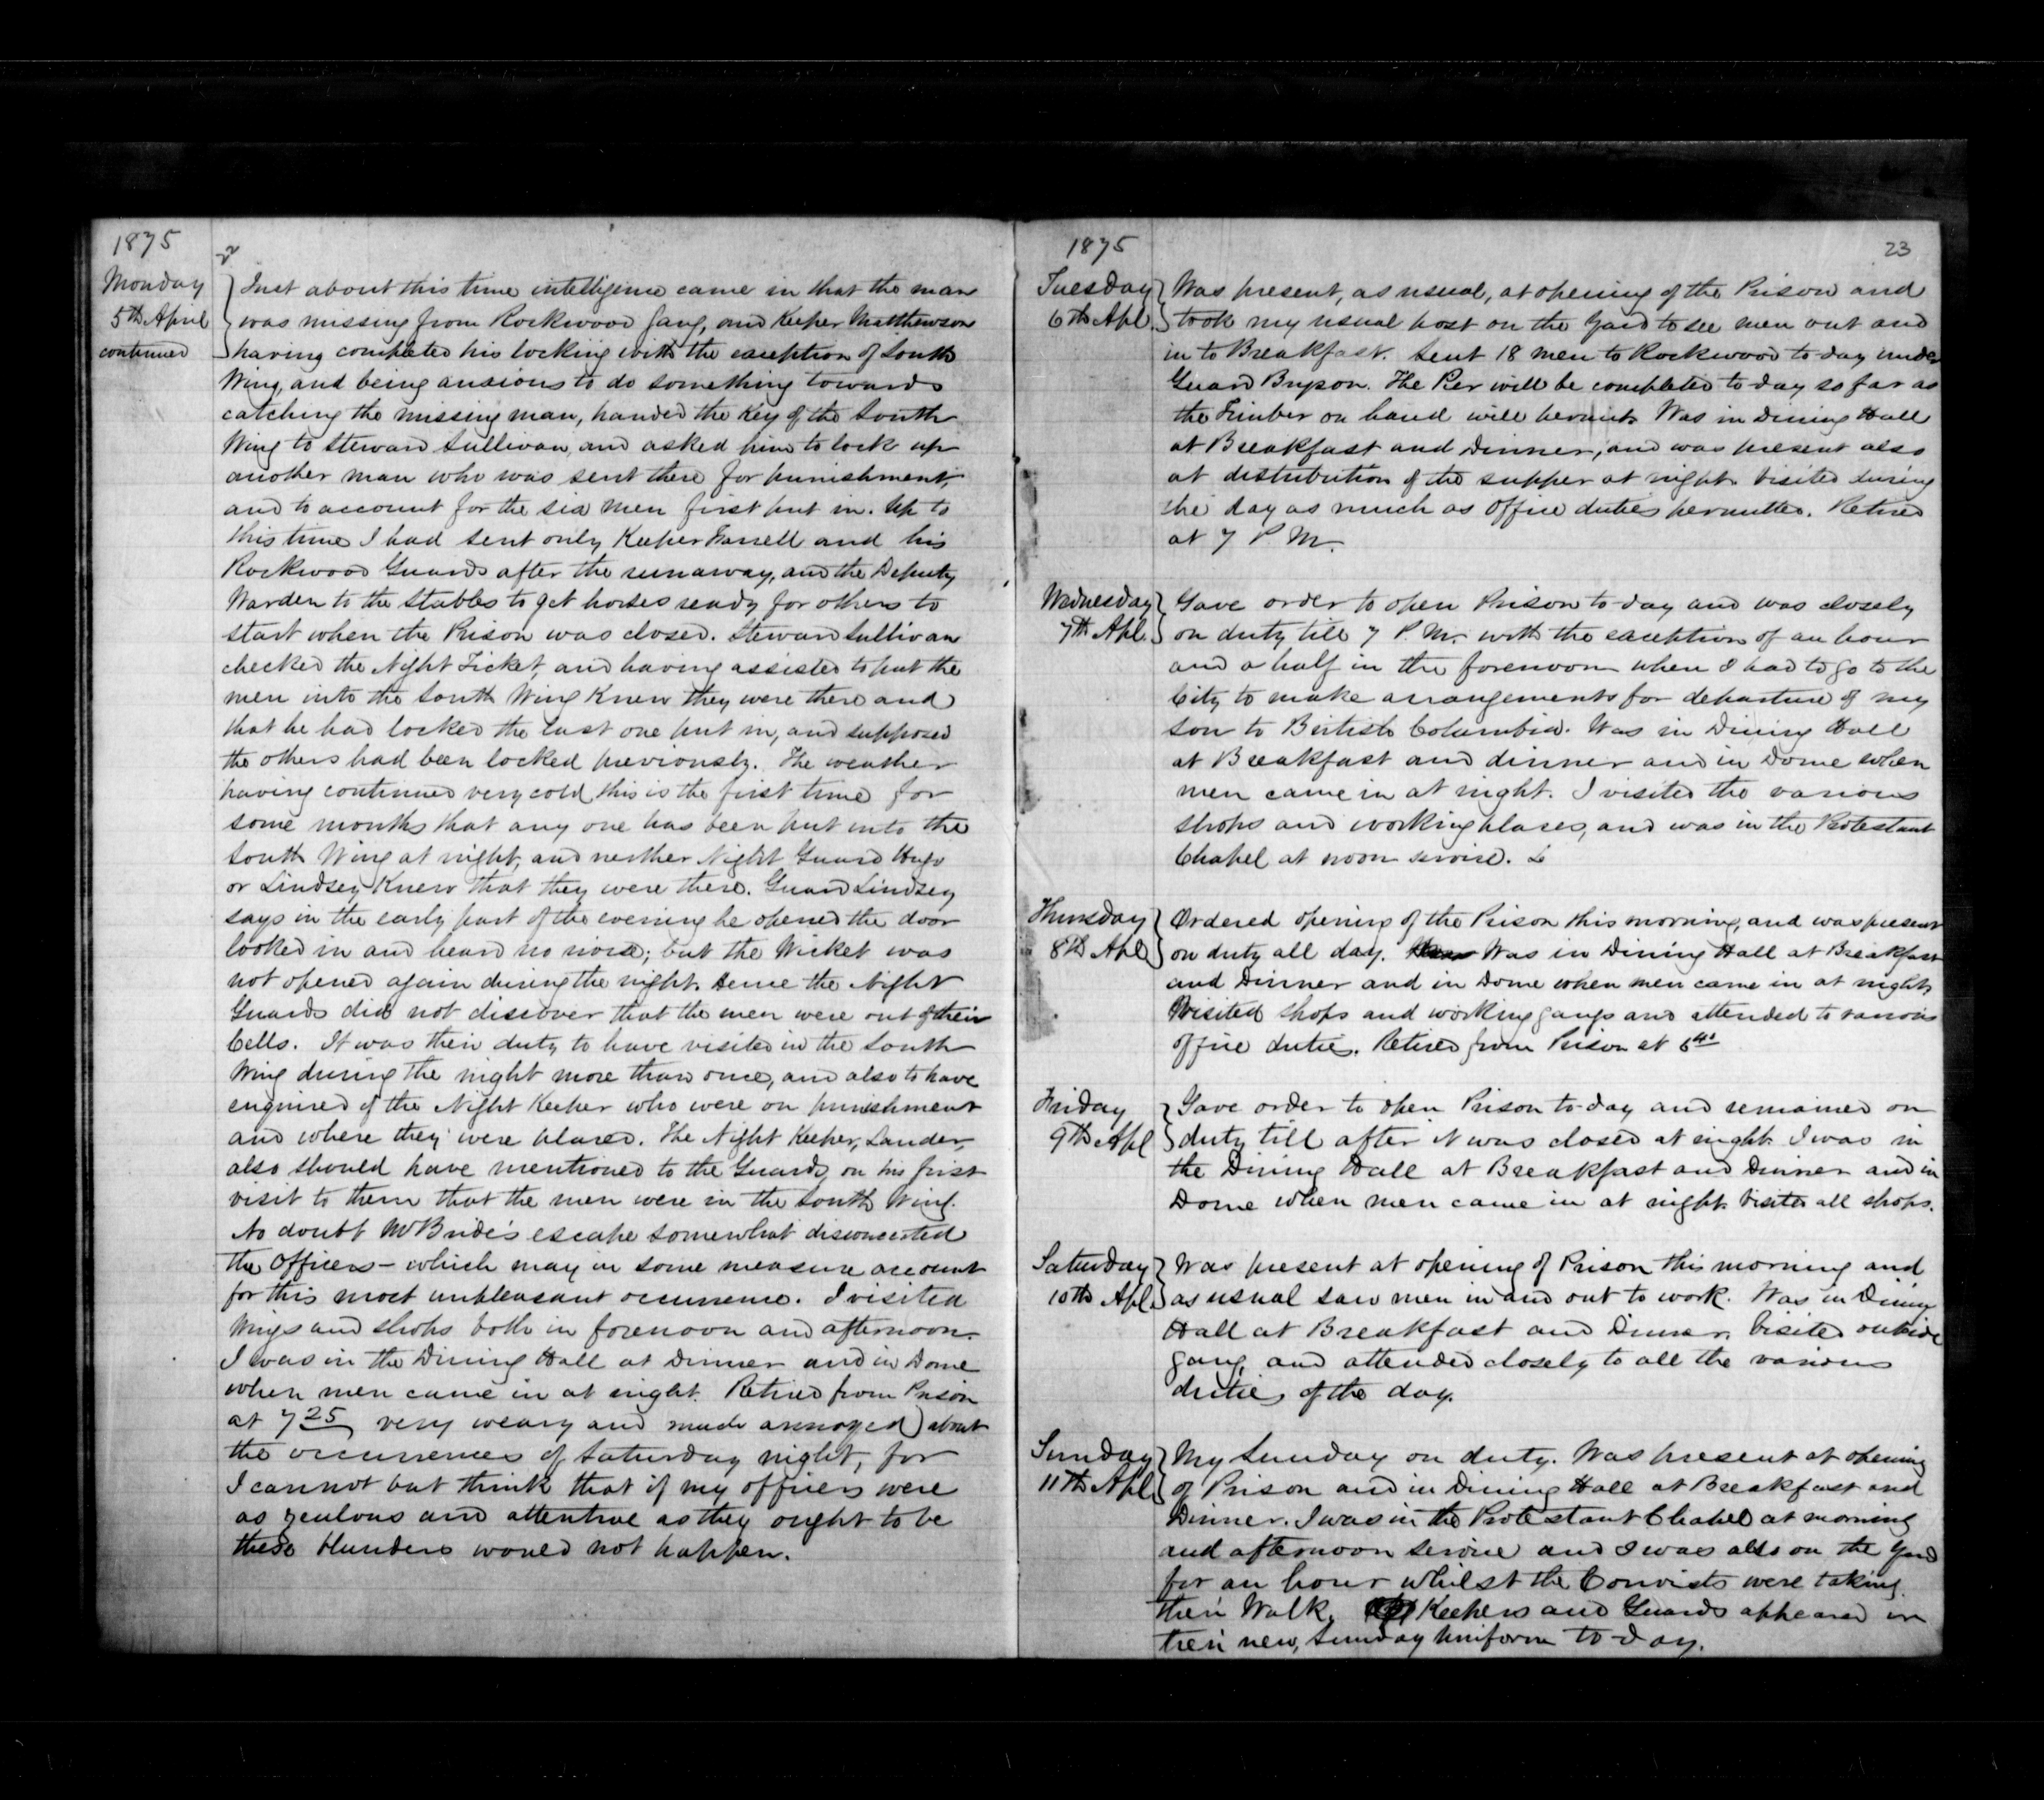 1875
22
Monday
5th April
continued
Just about this time intelligence came in that the man
was missing from Rockwood Gang, and Keeper Matthewson
having completed his locking with the exception of South
Wing, and being anxious to do something towards
catching the missing man, handed the Key of the South
Wing to Steward Sullivan, and asked him to lock up
another man who was sent there for punishment,
and to account for the six men first put in. Up to
this time I had sent only Keeper Farrell and his
Rockwood Guards after the runaway, and the Deputy
Warden to the Stables to get horses ready for others to
start when the Prison was closed. Steward Sullivan
checked the Night Ticket, and having assisted to put the
men into the South Wing Knew they were there and
that he had locked the last one put in, and supposed
the others had been locked previously. The weather
having continued very cold, this is the first time for
some months that any one has been put into the
South Wing at night, and neither Night Guard Hugo
or Lindsey Knew that they were there. Guard Lindsey
says in the early part of the evening he opened the door
looked in and heard no noise; but the Wicket was
not opened again during the night. Hence the Night
Guards did not discover that the men were out of their
Cells. It was their duty to have visited in the South
Wing during the night more than once, and also to have
enquired of the Night Keeper who were on punishment
and where they were placed. The Night Keeper, Lander,
also should have mentioned to the Guards, on his first
visit to them that the men were in the South Wing.
No doubt McBride's escape somewhat disconcerted
the Officers - which may in some measure account
for this most unpleasant occurrence. I visited
Wings and shops both in forenoon and afternoon.
I was in the Dining Hall at Dinner and in Dome
when men came in at night. Retired from Prison
at 7 25 very weary and much annoyed about
the occurrences of Saturday night, for
I cannot but think that if my officers were
as zealous and attentive as they ought to be
these blunders would not happen.
1875
23
Tuesday
6th Apl.
Was present, as usual, at opening of the Prison and
took my usual post on the Yard to see men out and
in to Breakfast. Sent 18 men to Rockwood to-day under
Guard Bryson. The Pier will be completed to day so far as
the Timber on hand will permit. Was in Dining Hall
at Breakfast and Dinner, and was present also
at distribution of the supper at night. Visited during
the day as much as Office duties permitted. Retired
at 7 P.M.
Wednesday
7th Apl.
Gave order to open Prison to-day and was closely
on duty till 7 P.M. with the exception of an hour
and a half in the forenoon when I had to go to the
City to make arrangements for departure of my
son to British Columbia. Was in Dining Hall
at Breakfast and dinner and in Dome when
men came in at night. I visited the various
shops and working places, and was in the Protestant
Chapel at noon service.
Thursday
8th Apl
Ordered opening of the Prison this morning, and was present
on duty all day. Was in Dining Hall at Breakfast
and Dinner and in Dome when men came in at night.
Visited shops and working gangs and attended to various
office duties. Retired from Prison at 6
Friday
9th Apl
Gave order to open Prison to-day and remained on
duty till after it was closed at night. I was in
the Dining Hall at Breakfast and Dinner and in
Dome when men came in at night. Visited all shops.
Saturday
10th Apl
Was present at opening of Prison this morning and
as usual saw men in and out to work. Was in Dining
Hall at Breakfast and Dinner. Visited outside
gang, and attended closely to all the various
duties of the day.
Sunday
11th Apl
My Sunday on duty. Was present at opening
of Prison and in Dining Hall at Breakfast and
Dinner. I was in the Protestant Chapel at morning
and afternoon service and I was also on the Yard
for an hour whilst the Convicts were taking
their Walk. Keepers and Guards appeared in
their new, Sunday Uniform to-day.